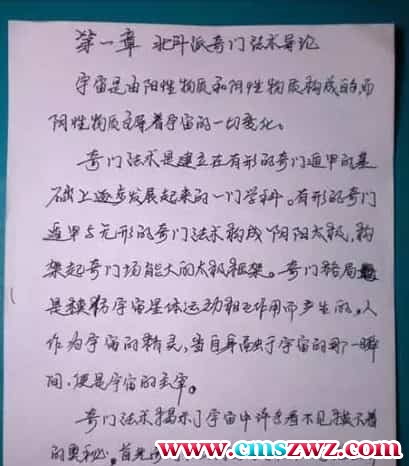 第一章 北斗派奇门法术导论
宇宙是由阳性物质和阴性物质构成的,而
阴性物质主导着宇宙的一切变化。
奇门法术是建立在有形的奇门遁甲的基
础上逐步发展起来的一门学科。有形的奇门
遁甲与无形的奇门法术构成阴阳太极,构
架起奇门场能大的太极框架。奇门格局
是模仿宇宙星体运动相互作用而产生的,人
作为宇宙的精灵,当自身融于宇宙的那一瞬
间,便是宇宙的主宰。
奇门法术揭示了宇宙中许多看不见摸不着
的奥秘。首先
www.cmszwz.com